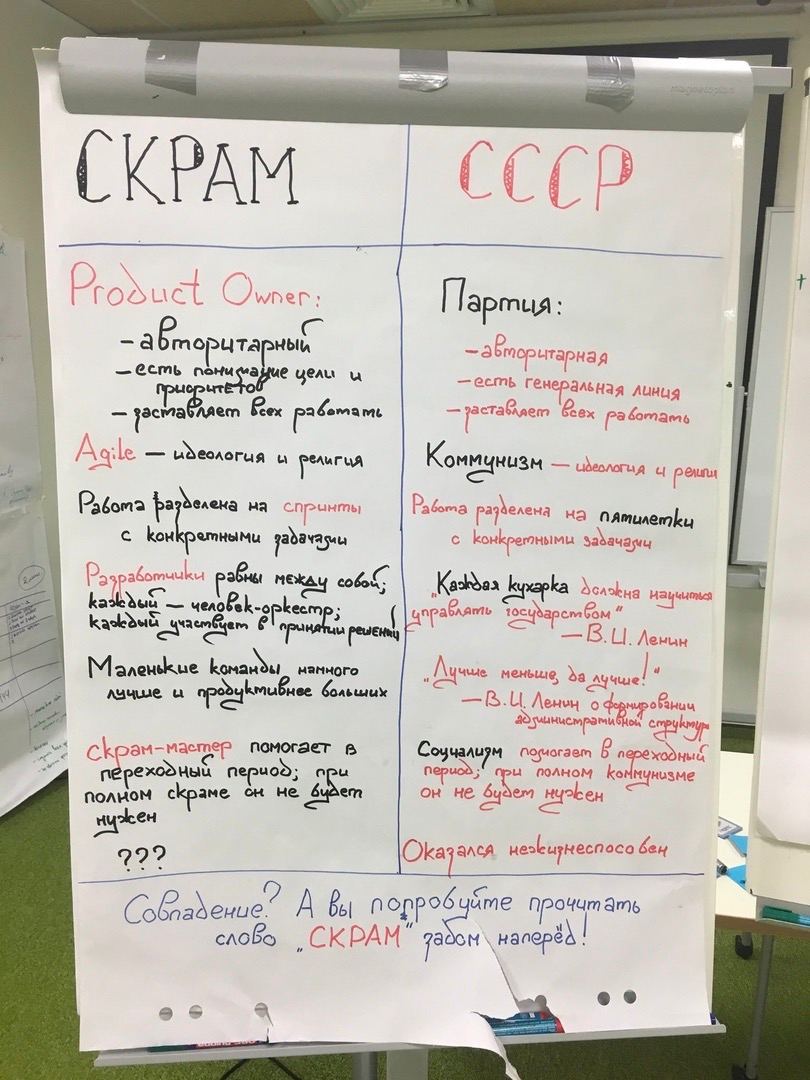 СКРАМ
Product Owner:
- авторитарный
- есть понимание цели и
приоритетов
- заставляет всех работать
Agile — идеология и религия
Работа разделена на спринты
с конкретными задачами
Разработчики равны между собой;
каждый — человек-оркестр;
каждый участвует в принятии решений
Маленькие команды намного
лучше и продуктивнее больших
скрам-мастер помогает в
переходный период; при
полном скраме он не будет
нужен
???
СССР
Партия:
- авторитарная
- есть генеральная линия
- заставляет всех работать
Коммунизм — идеология и религия
Работа разделена на пятилетки
с конкретными задачами
„Каждая кухарка должна научиться
управлять государством“
— В.И. Ленин
„Лучше меньше, да лучше!“
— В.И. Ленин о формировании
административной структуры
Социализм помогает в переходный
период; при полном коммунизме
он не будет нужен
Оказался нежизнеспособен
Совпадение? А вы попробуйте прочитать
слово „СКРАМ“ задом наперёд!